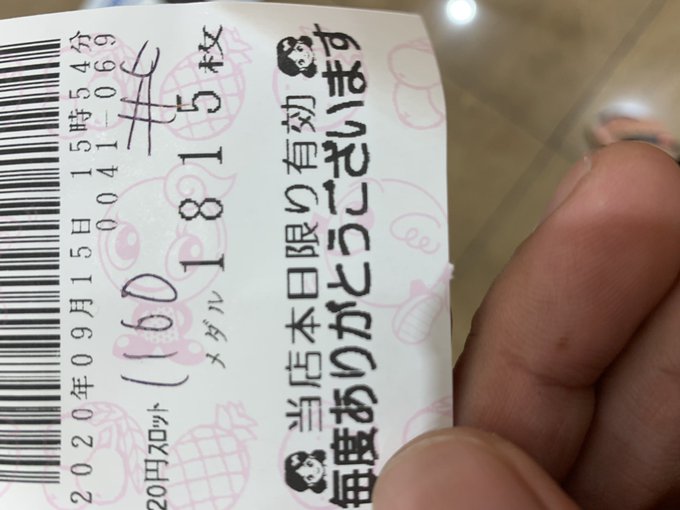 2020年09月15日 15時54分
0041-069
1160
20円スロット
メダル 1815枚
当店本日限り有効
毎度ありがとうございます